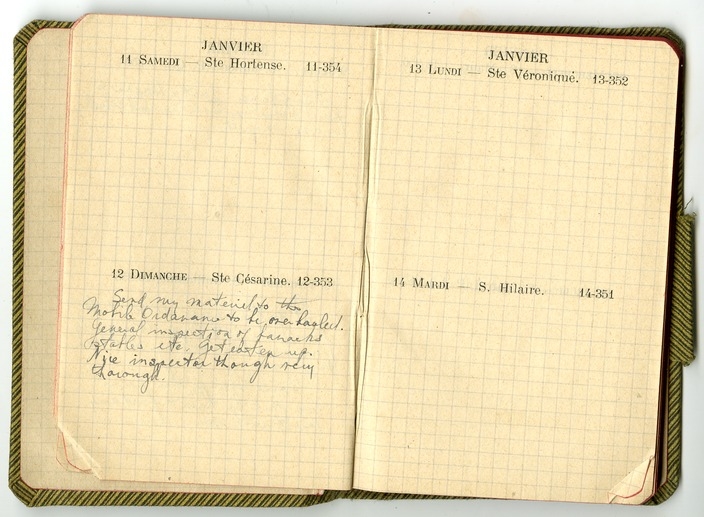 JANVIER
11 SAMEDI — Ste Hortense. 11-354
12 DIMANCHE — Ste Césarine. 12-353
Send my materiel to the
Mobile Ordanance to be overhauled.
General inspection of barracks
stables etc. Get eaten up.
Nice inspector though very
thorough.
JANVIER
13 LUNDI — Ste Véronique. 13-352
14 MARDI — S. Hilaire. 14-351